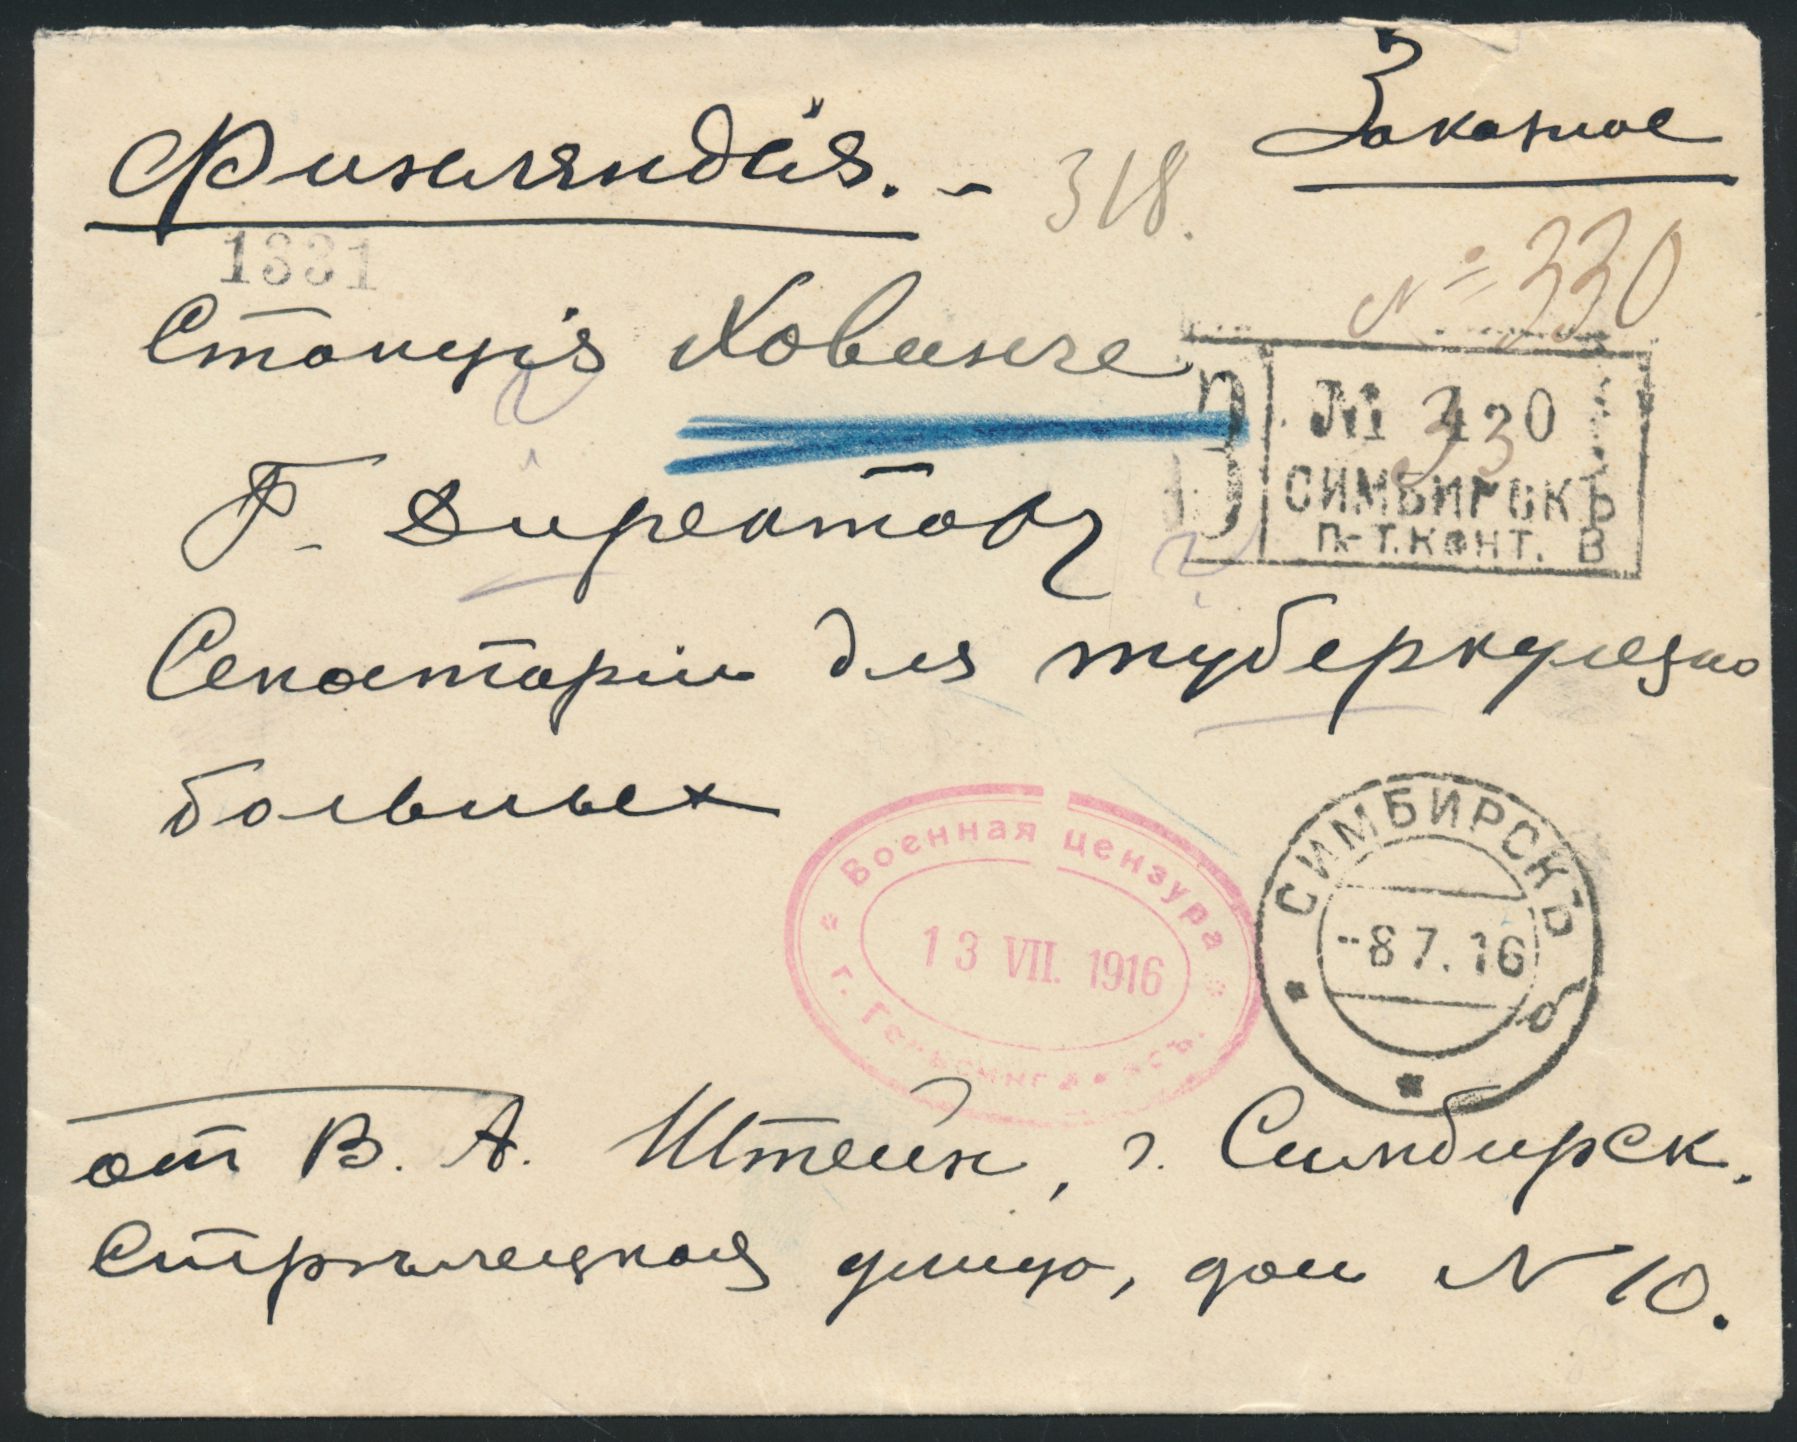 Заказное
Финляндія. -
318.
№ 330
1331
Станція Ховинге
З № 430
330
СИМБИРСКЪ
П.-Т. КОНТ. В
Г. Директору
Санаторіи для туберкулезно
больных
Военная цензура
13 VII. 1916
г. Гельсингфорсъ.
СИМБИРСКЪ
-8 7. 16
б
от В. А. Штейн, г. Симбирск.
Стрѣлецкая улица, дом N 10.